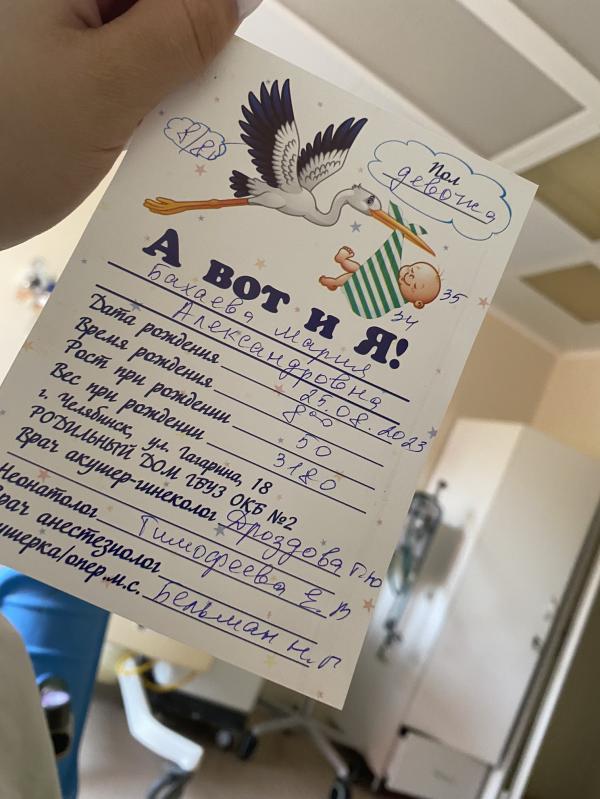 8/8
Пол
девочка
А вот и Я!
35
34
Бахаева Мария
Александровна
Дата рождения 25.08.2023
Время рождения 8⁰⁰
Рост при рождении 50
Вес при рождении 3180
г. Челябинск, ул. Гагарина, 18
РОДИЛЬНЫЙ ДОМ ГБУЗ ОКБ №2
Врач акушер-гинеколог Дроздова Г.Ю
Неонатолог Тимофеева Е В
Врач анестезиолог
кушерка/опер.м.с. Бельман Н.П